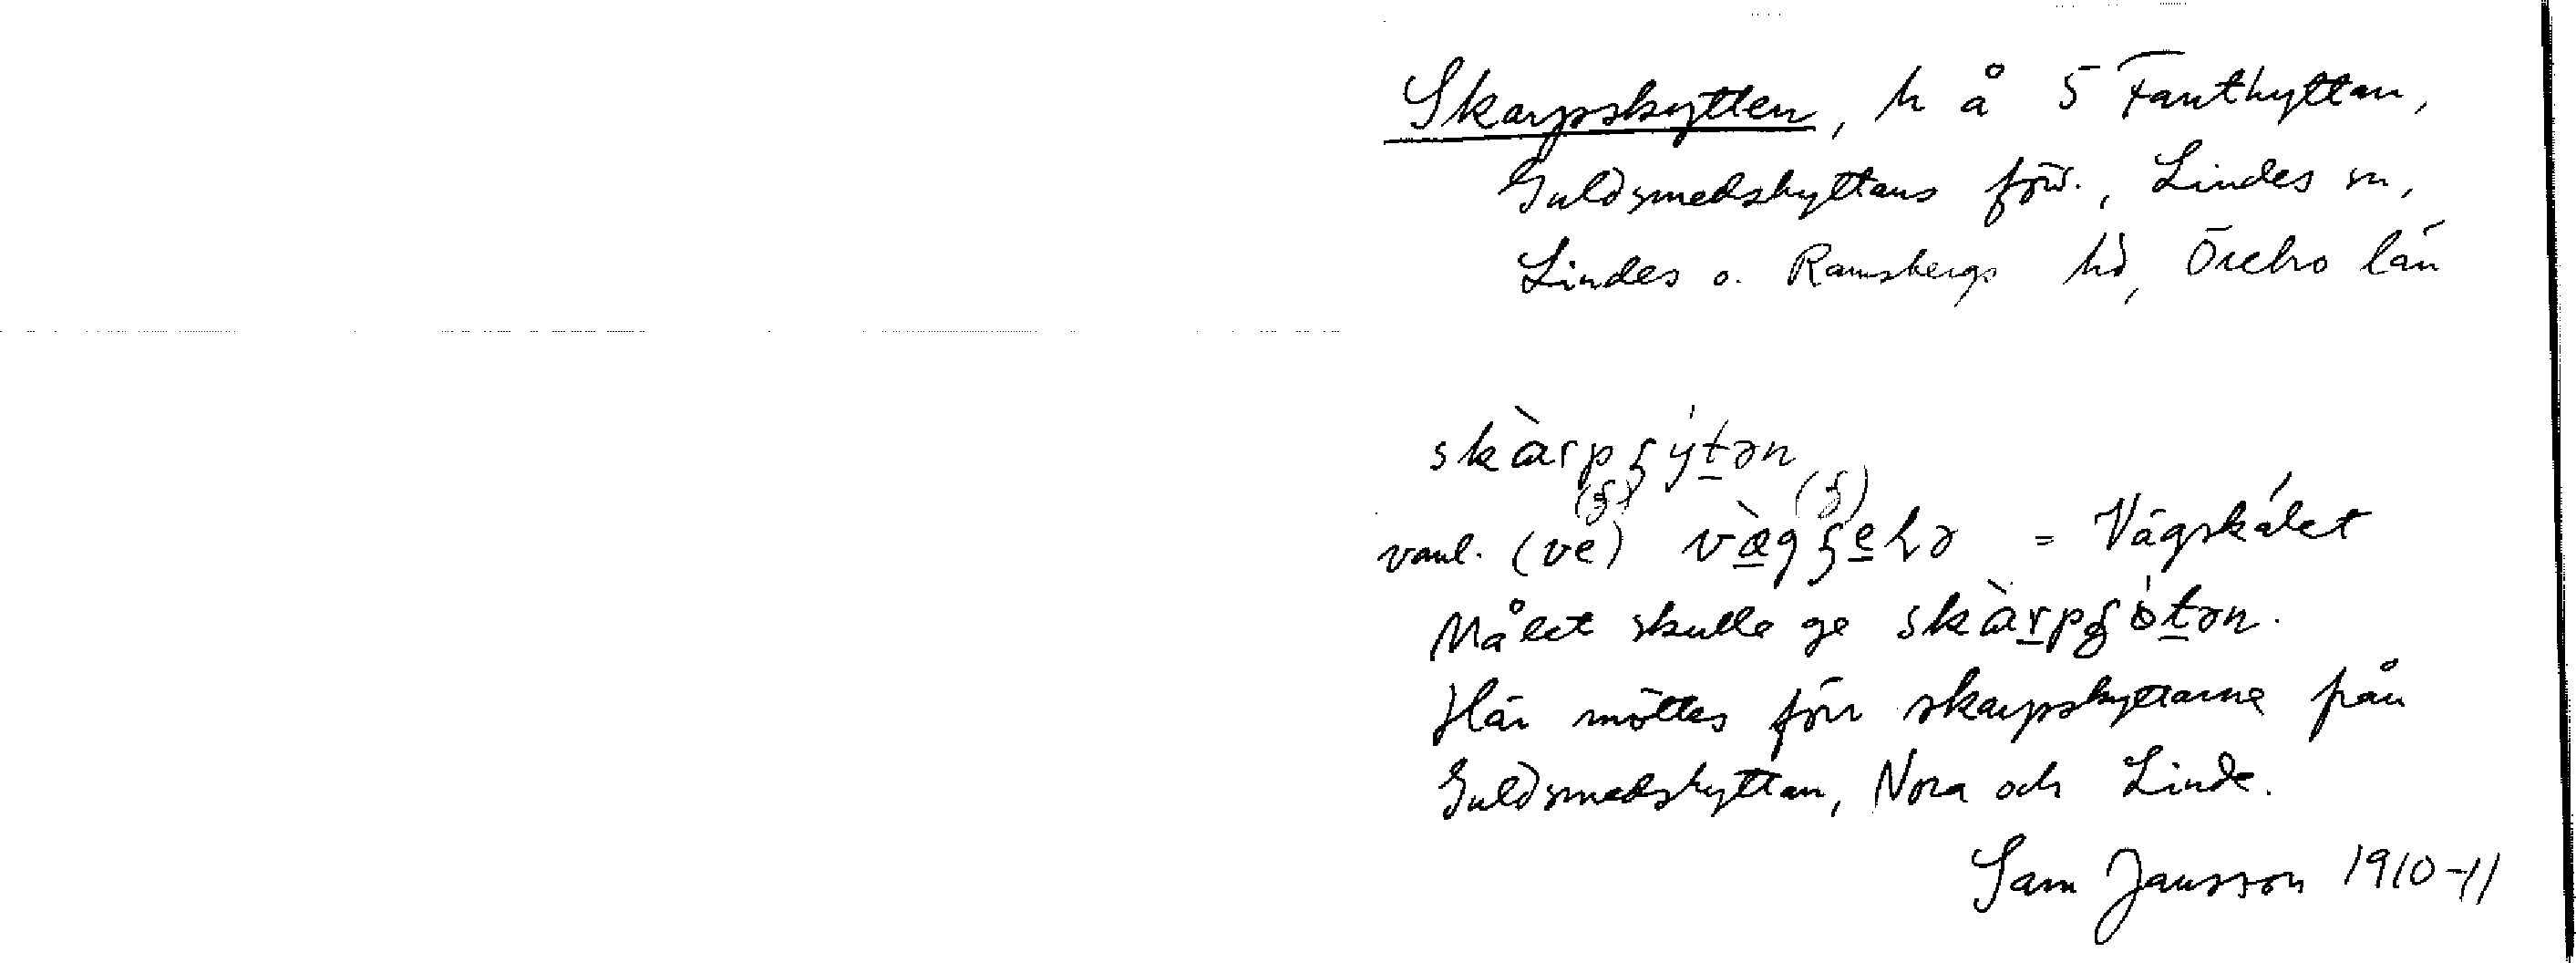 Skarpskytten, h å 5 Fanthyttan,
Guldsmedshyttans förs., Lindes sn,
Lindes o. Ramsbergs hd, Örebro län
skàrpʂýtən
(ʂ) (ʂ)
vanl. (ve) væ̀gʂelə = Vägskälet
Målet skulle ge skàrpʂötən.
Här möttes förr skarpskyttarne från
Guldsmedshyttan, Nora och Linde.
Sam Jansson 1910-11